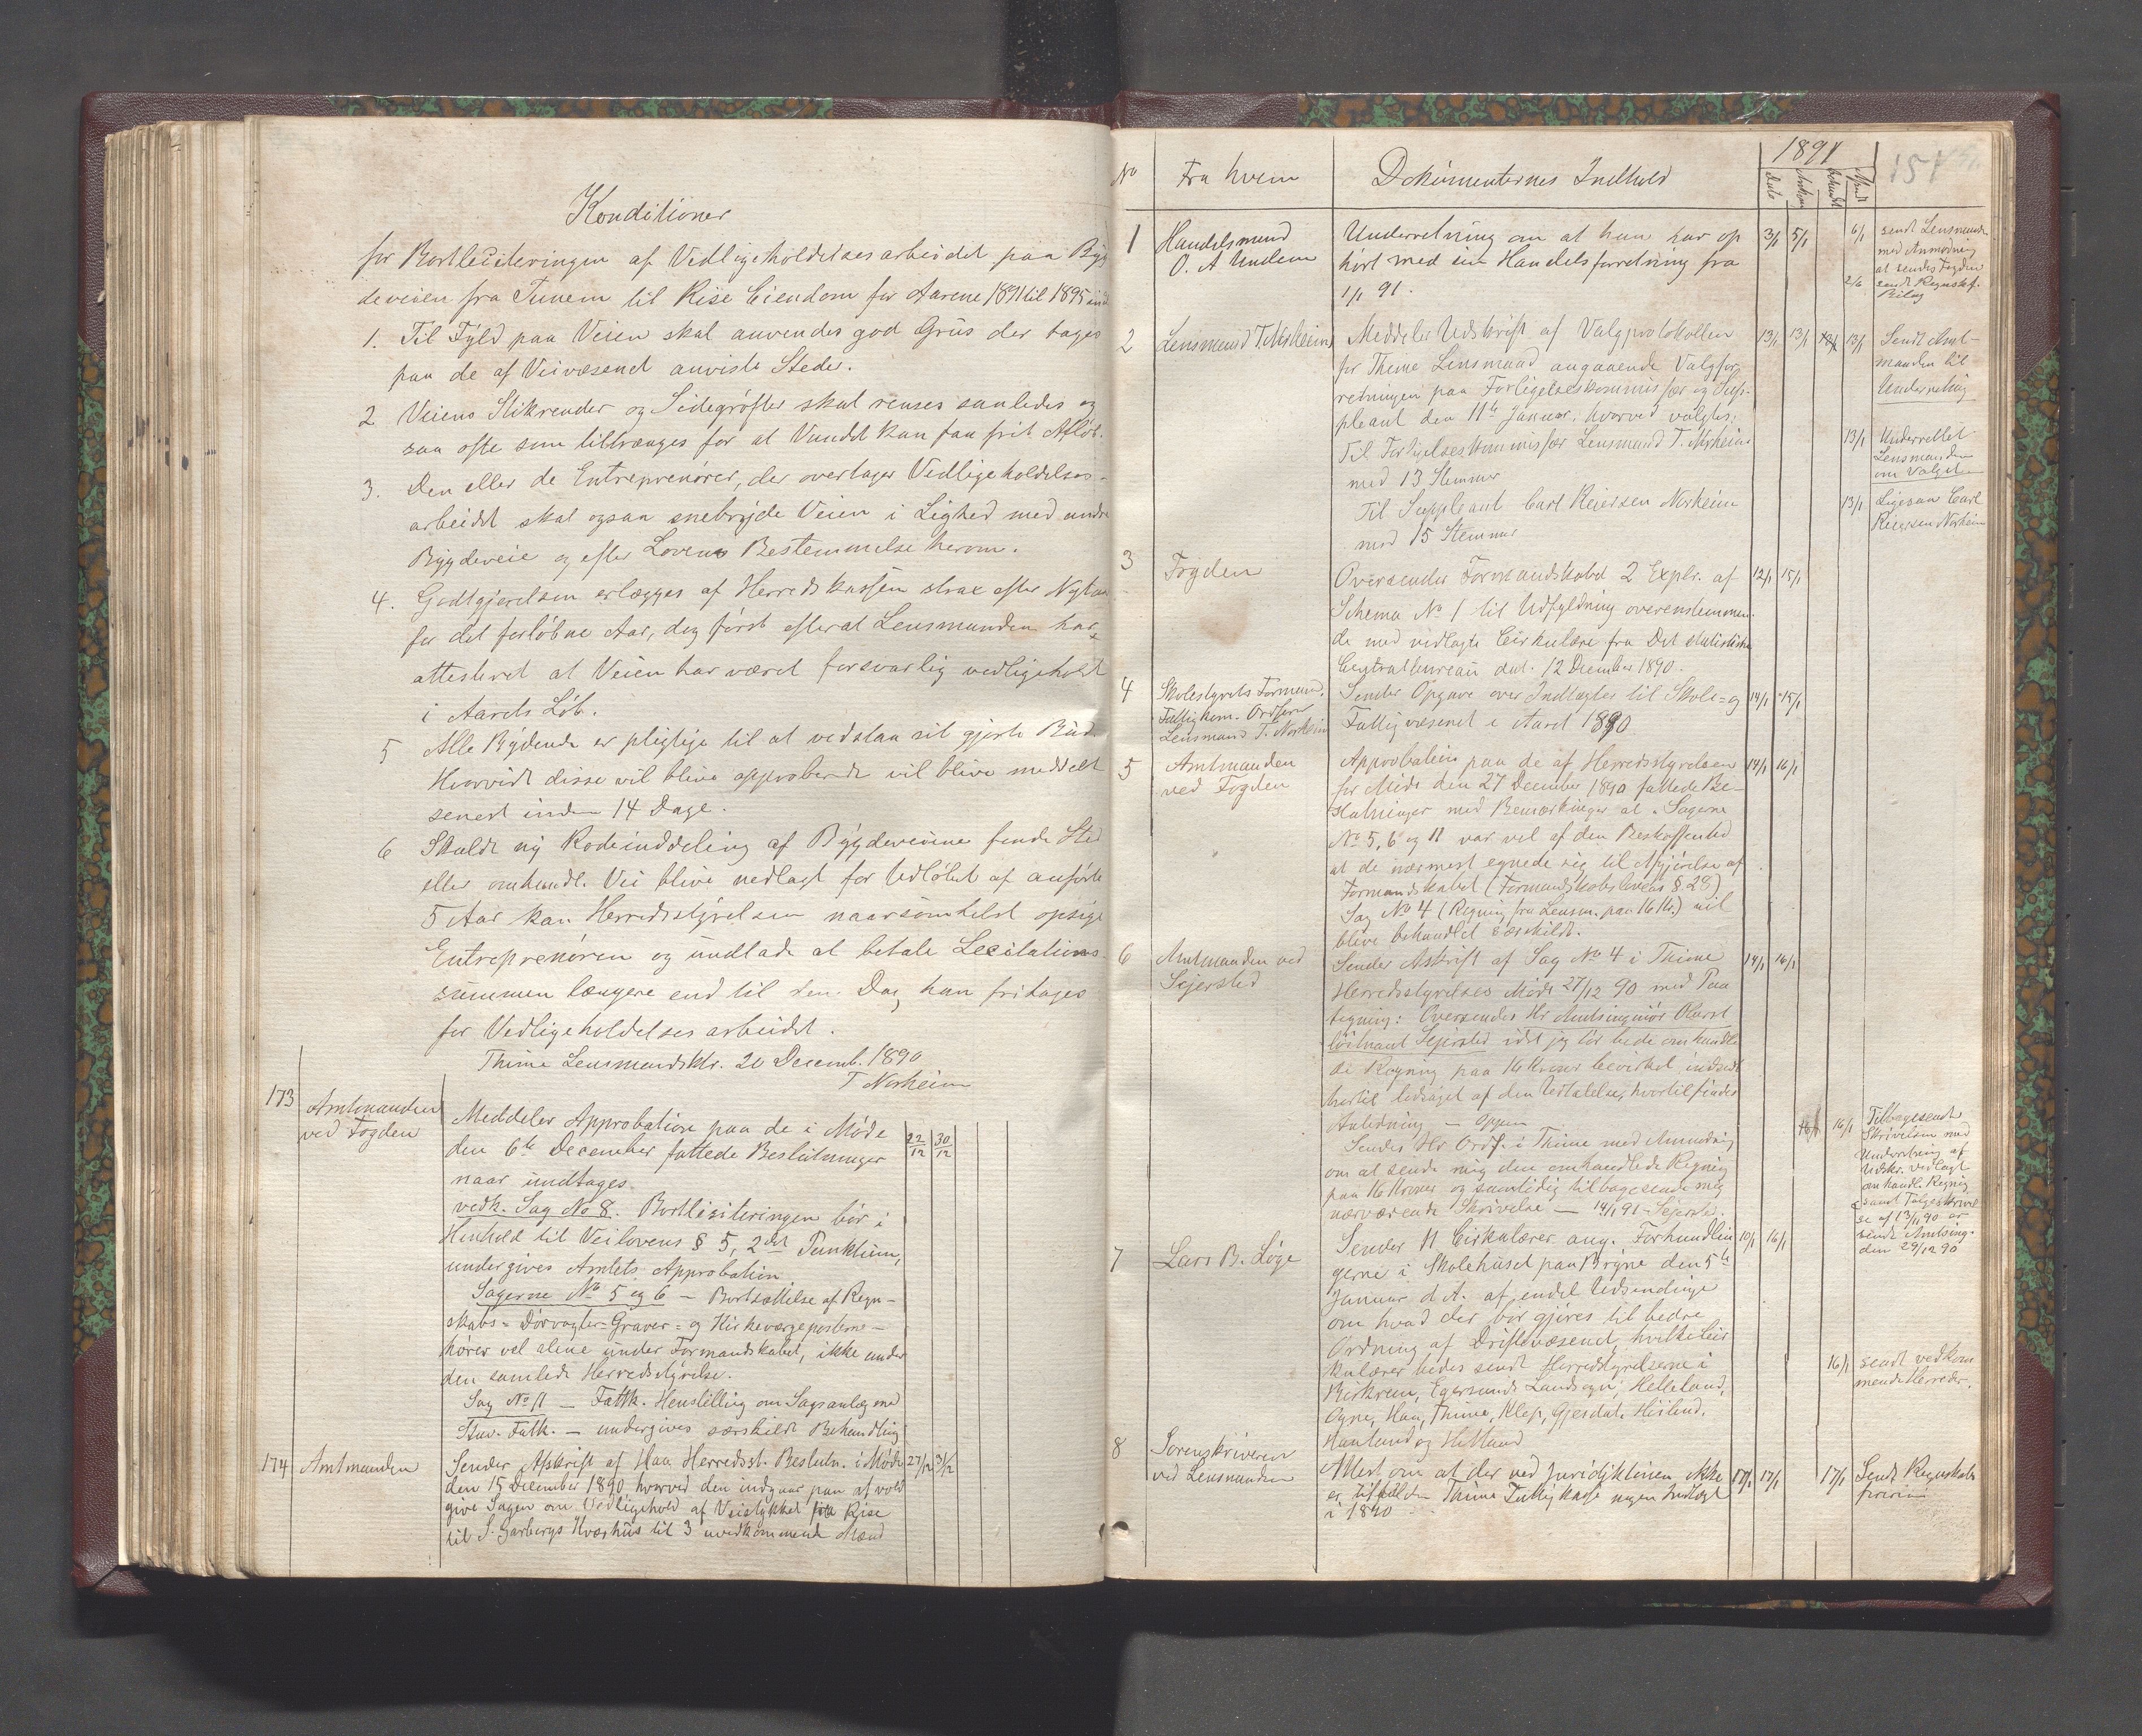 Konditioner
for Bortliciteringen af Vedligeholdelsesarbeidet paa Byg
deveien fra Tunem til Rise Eiendom for Aarene 1891 til 1895 incl
1. Til Fyld paa Veien skal anvendes god Grus der tages
paa de af Veivæsenet anviste Steder.
2 Veiens Stikrender og Sidegrøfter skal renses saaledes og
saa ofte som tiltrænges for at Vandet kan faa frit Afløb.
3. Den eller de Entreprenører, der overtager Vedligeholdelses-
arbeidet skal ogsaa snebrøjde Veien i Lighed med andre
Bygdeveie og efter Lovens Bestemmelse herom.
4. Godtgjørelsen erlægges af Herredskassen strax efter Nytaar
for det forløbne Aar, dog først efterat Lensmanden har
attesteret at Veien har været forsvarlig vedligeholdt
i Aarets Løb.
5 Alle Bydende er pligtige til at vedstaa sit gjorte Bud.
Hvorvidt disse vil blive approberede vil blive meddelt
senest inden 14 Dage.
6 Skulde ny Rodeinddeling af Bygdeveiene finde Sted
eller omhandl. Vei blive nedlagt før Udløbet af anførte
5 Aar kan Herredsstyrelsen naarsomhelst opsige
Entreprenøren og undlade at betale Licitations-
summen længere end til den Dag han fritages
for Vedligeholdelsesarbeidet.
Thime Lensmandsktr. 20 Decemb. 1890
T Norheim
173 Amtmanden
ved Fogden
Meddeler Approbation paa de i Møde 22/12 30/12
den 6te December fattede Beslutninger
naar undtages
vedk. Sag No 8. Bortliciteringen bør i
Henhold til Veilovens § 5, 2det Punktum,
undergives Amtets Approbation
Sagerne No 5 og 6 — Bortsættelse af Regn-
skabs- Dørvogter- Graver- og Kirkeværgeposterne —
hører vel alene under Formandskabet, ikke under
den samlede Herredsstyrelse.
Sag No 11 — Fattk. Henstilling om Sagsanlæg med
Stav. Fattk. — undergives særskildt Behandling
174 Amtmanden Sender Afskrift af Haa Herredsst. Beslutn. i Møde 27/12 31/12
den 15 December 1890 hvorved den indgaar paa at vold
give Sagen om Vedligehold af Veistykket fra Rise
til S. Garborgs Kværhus til 3 uvedkommende Mænd
No Fra hvem Dokumenternes Indhold 1891 154
Dato Ankom Afsendt
1 Handelsmand
O. A Undem
Underretning om at han har op 3/1 5/1
hørt med sin Handelsforretning fra
1/1 91.
6/1 sendt Lensmanden
med Anmodning
at sendes Fogden
2/6 sendt Regnskf.
Bilag
2 Lensmand T. Norheim Meddeler Udskrift af Valgprotokollen 13/1 13/1 13/1
for Thime Lensmand angaaende Valgfor
retningen paa Forligelseskommissær og Sup-
pleant den 11te Januar, hvorved valgtes:
Til Forligelseskommissær Lensmand T. Norheim
med 13 Stemmer
Til Suppleant Carl Reiersen Norheim
med 15 Stemmer
Sendt Amt-
manden til
Underretning
13/1 Underrettet
Lensmanden
om Valget
13/1 Ligesaa Carl
Reiersen Norheim
3 Fogden Oversender Formandskabet 2 Explr. af 12/1 15/1
Schema No 1 til Udfyldning overensstemmen-
de med vedlagte Cirkulære fra Det statistiske
Centralbureau dat. 12 December 1890.
4 Skolestyrets Formand,
Fattigkom. Ordfører
Lensmand T. Norheim
Sender Opgave over Indtægter til Skole- og 14/1 15/1
Fattigvæsenet i Aaret 1890
5 Amtmanden
ved Fogden
Approbation paa de af Herredsstyrelsen 14/1 16/1
for Møde den 27 December 1890 fattede Be-
slutninger med Bemærkninger at "Sagerne
No 5, 6 og 11 var vel af den Beskaffenhed
at de nærmest egnede sig til Afgjørelse af
Formandskabet (Formandskabslovens § 28)
Sag No 4 (Regning fra Lensm. paa 16 Kr.) vil
blive behandlet særskildt.
6 Amtmanden ved
Sejersted
Sender Afskrift af Sag No 4 i Thime 14/1 16/1
Herredsstyrelses Møde 27/12 90 med Paa
tegning: Oversendes Hr Amtsingeniør Premier
løitnant Sejersted idet jeg tør bede omhandle-
de Regning paa 16 Kroner bevirket indsendt
hertil ledsaget af den Udtalelse, hvortil findes
Anledning —
Sendes Hr Ordf. i Thime med Anmodning
om at sende mig den omhandlede Regning
paa 16 Kroner og samtidig tilbagesende mig
nærværende Skrivelse — 14/1 91 — Sejersted.
16/1 Tilbagesendt
Skrivelsen med
Underretning af
Udskr. vedlagt
omhandl. Regnig
samt Følgeskrivel
se af 13/11 90 er
sendt Amtsing.
den 29/12 90
7 Lars B. Løge Sender 11 Cirkulærer ang. Forhandlin 10/1 16/1
gerne i Skolehuset paa Bryne den 5te
Januar d. A. af endel Udsendinge
om hvad der bør gjøres til bedre
Ordning af Driftevæsenet, hvilke Cir
kulærer bedes sendt Herredsstyrelserne i
Birkrem, Egersunds Landsogn, Helleland,
Ogne, Haa, Thime, Klep, Gjesdal, Høiland,
Haaland og Hetland
16/1 sendt vedkom
mende Herreder.
8 Sorenskriveren
ved Lensmanden
Attest om at der ved Juridiktionen ikke 17/1 17/1
er tilfalden Thime Fattigkasse nogen Indtægt
i 1890
17/1 Sendt Regnskabs
føreren